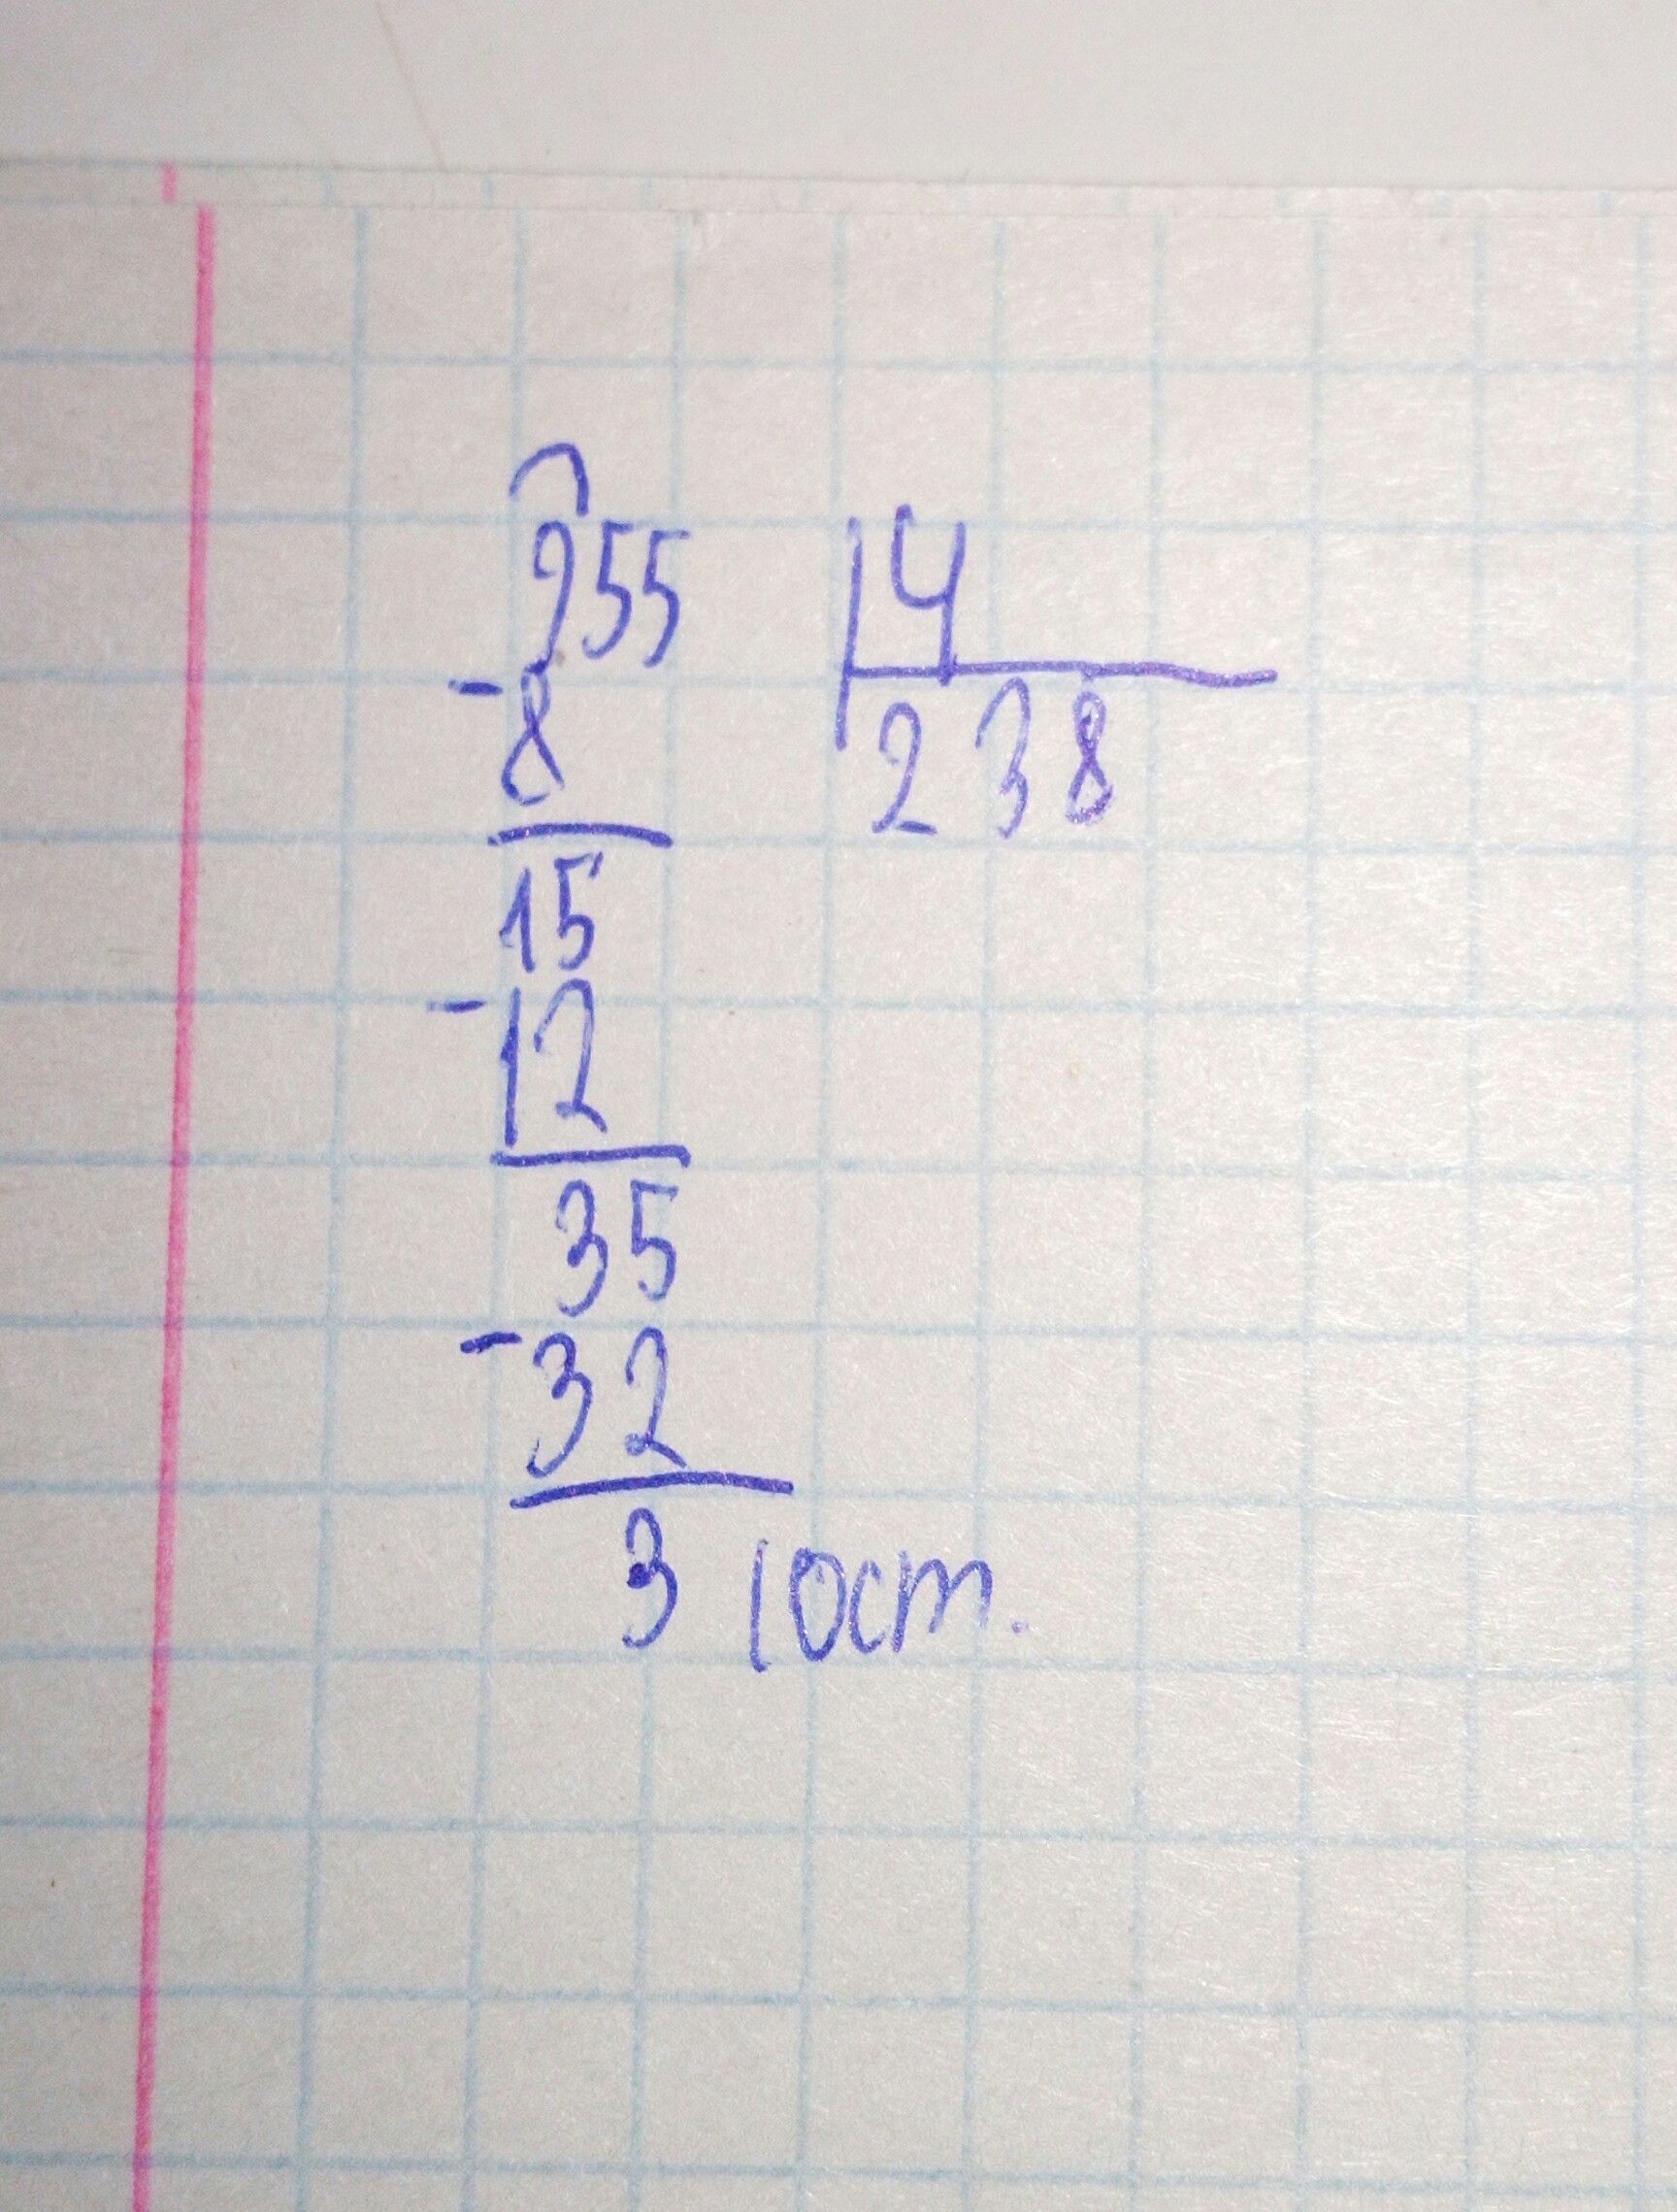 955 4
-8 238
15
-12
35
-32
3 (ост.